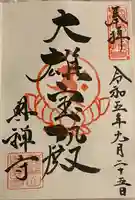 奉拝
令和五年九月二十五日
大雄宝殿
禅寺